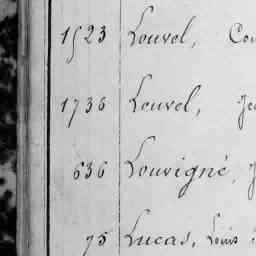 1523 Louvel,
1736 Louvel,
636 Louvigné,
75 Lucas, Louis